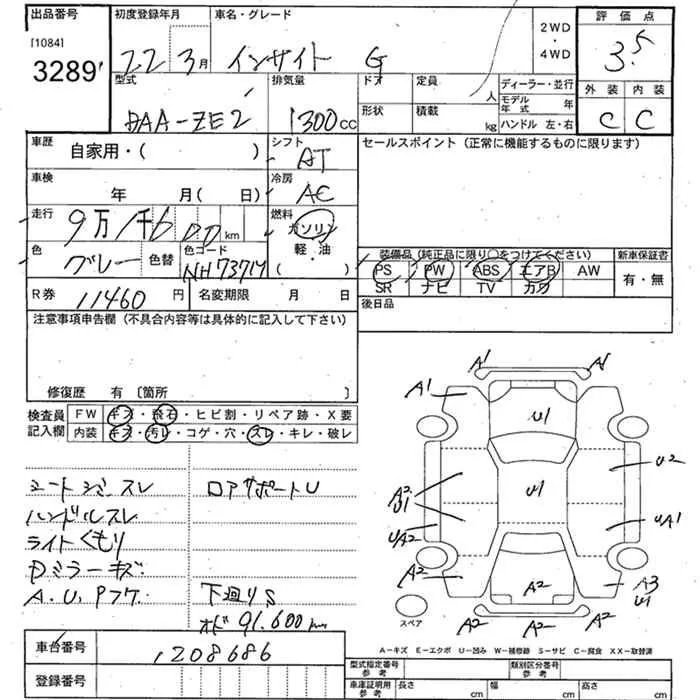 出品番号
[1084]
3289
初度登録年月
22年 3月
車名・グレード
インサイト G
2WD
・
4WD
評価点
3.5
外装 内装
C C
型式
DAA-ZE2
排気量
1300cc
ドア
定員
人
形状
積載
kg
ディーラー・並行
モデル年式 年
ハンドル 左・右
車歴
自家用・( )
シフト
AT
車検
年 月( 日)
冷房
AC
走行
9万1千600km
燃料
ガソリン
軽・油
( )
色
グレー
色替
色コード
NH737M
R券
11460円
名変期限 月 日
セールスポイント(正常に機能するものに限ります)
装備品(純正品に限り○をつけてください)
PS PW ABS エアB AW
SR ナビ TV カワ
新車保証書
有・無
後日品
注意事項申告欄(不具合内容等は具体的に記入して下さい)
修復歴 有 〔箇所 〕
検査員記入欄
FW キズ・飛石・ヒビ割・リペア跡・X要
内装 キズ・汚レ・コゲ・穴・スレ・キレ・破レ
シートシミスレ
ハンドルスレ
ライトくもり
Dミラーキズ
A.U.Pフケ
ロアサポートU
下廻りS
オド91.600km
A1 A1
A1
U1
U2
A2
U1
U1
UA2
UA1
A2
A2
A3
U1
A2 A2 A2
スペア
A-キズ E-エクボ U-凹み W-補修跡 S-サビ C-腐食 XX-取替済
車台番号
1208686
登録番号
型式指定番号 参考
類別区分番号 参考
車庫証明用 参考
長さ cm
幅 cm
高さ cm